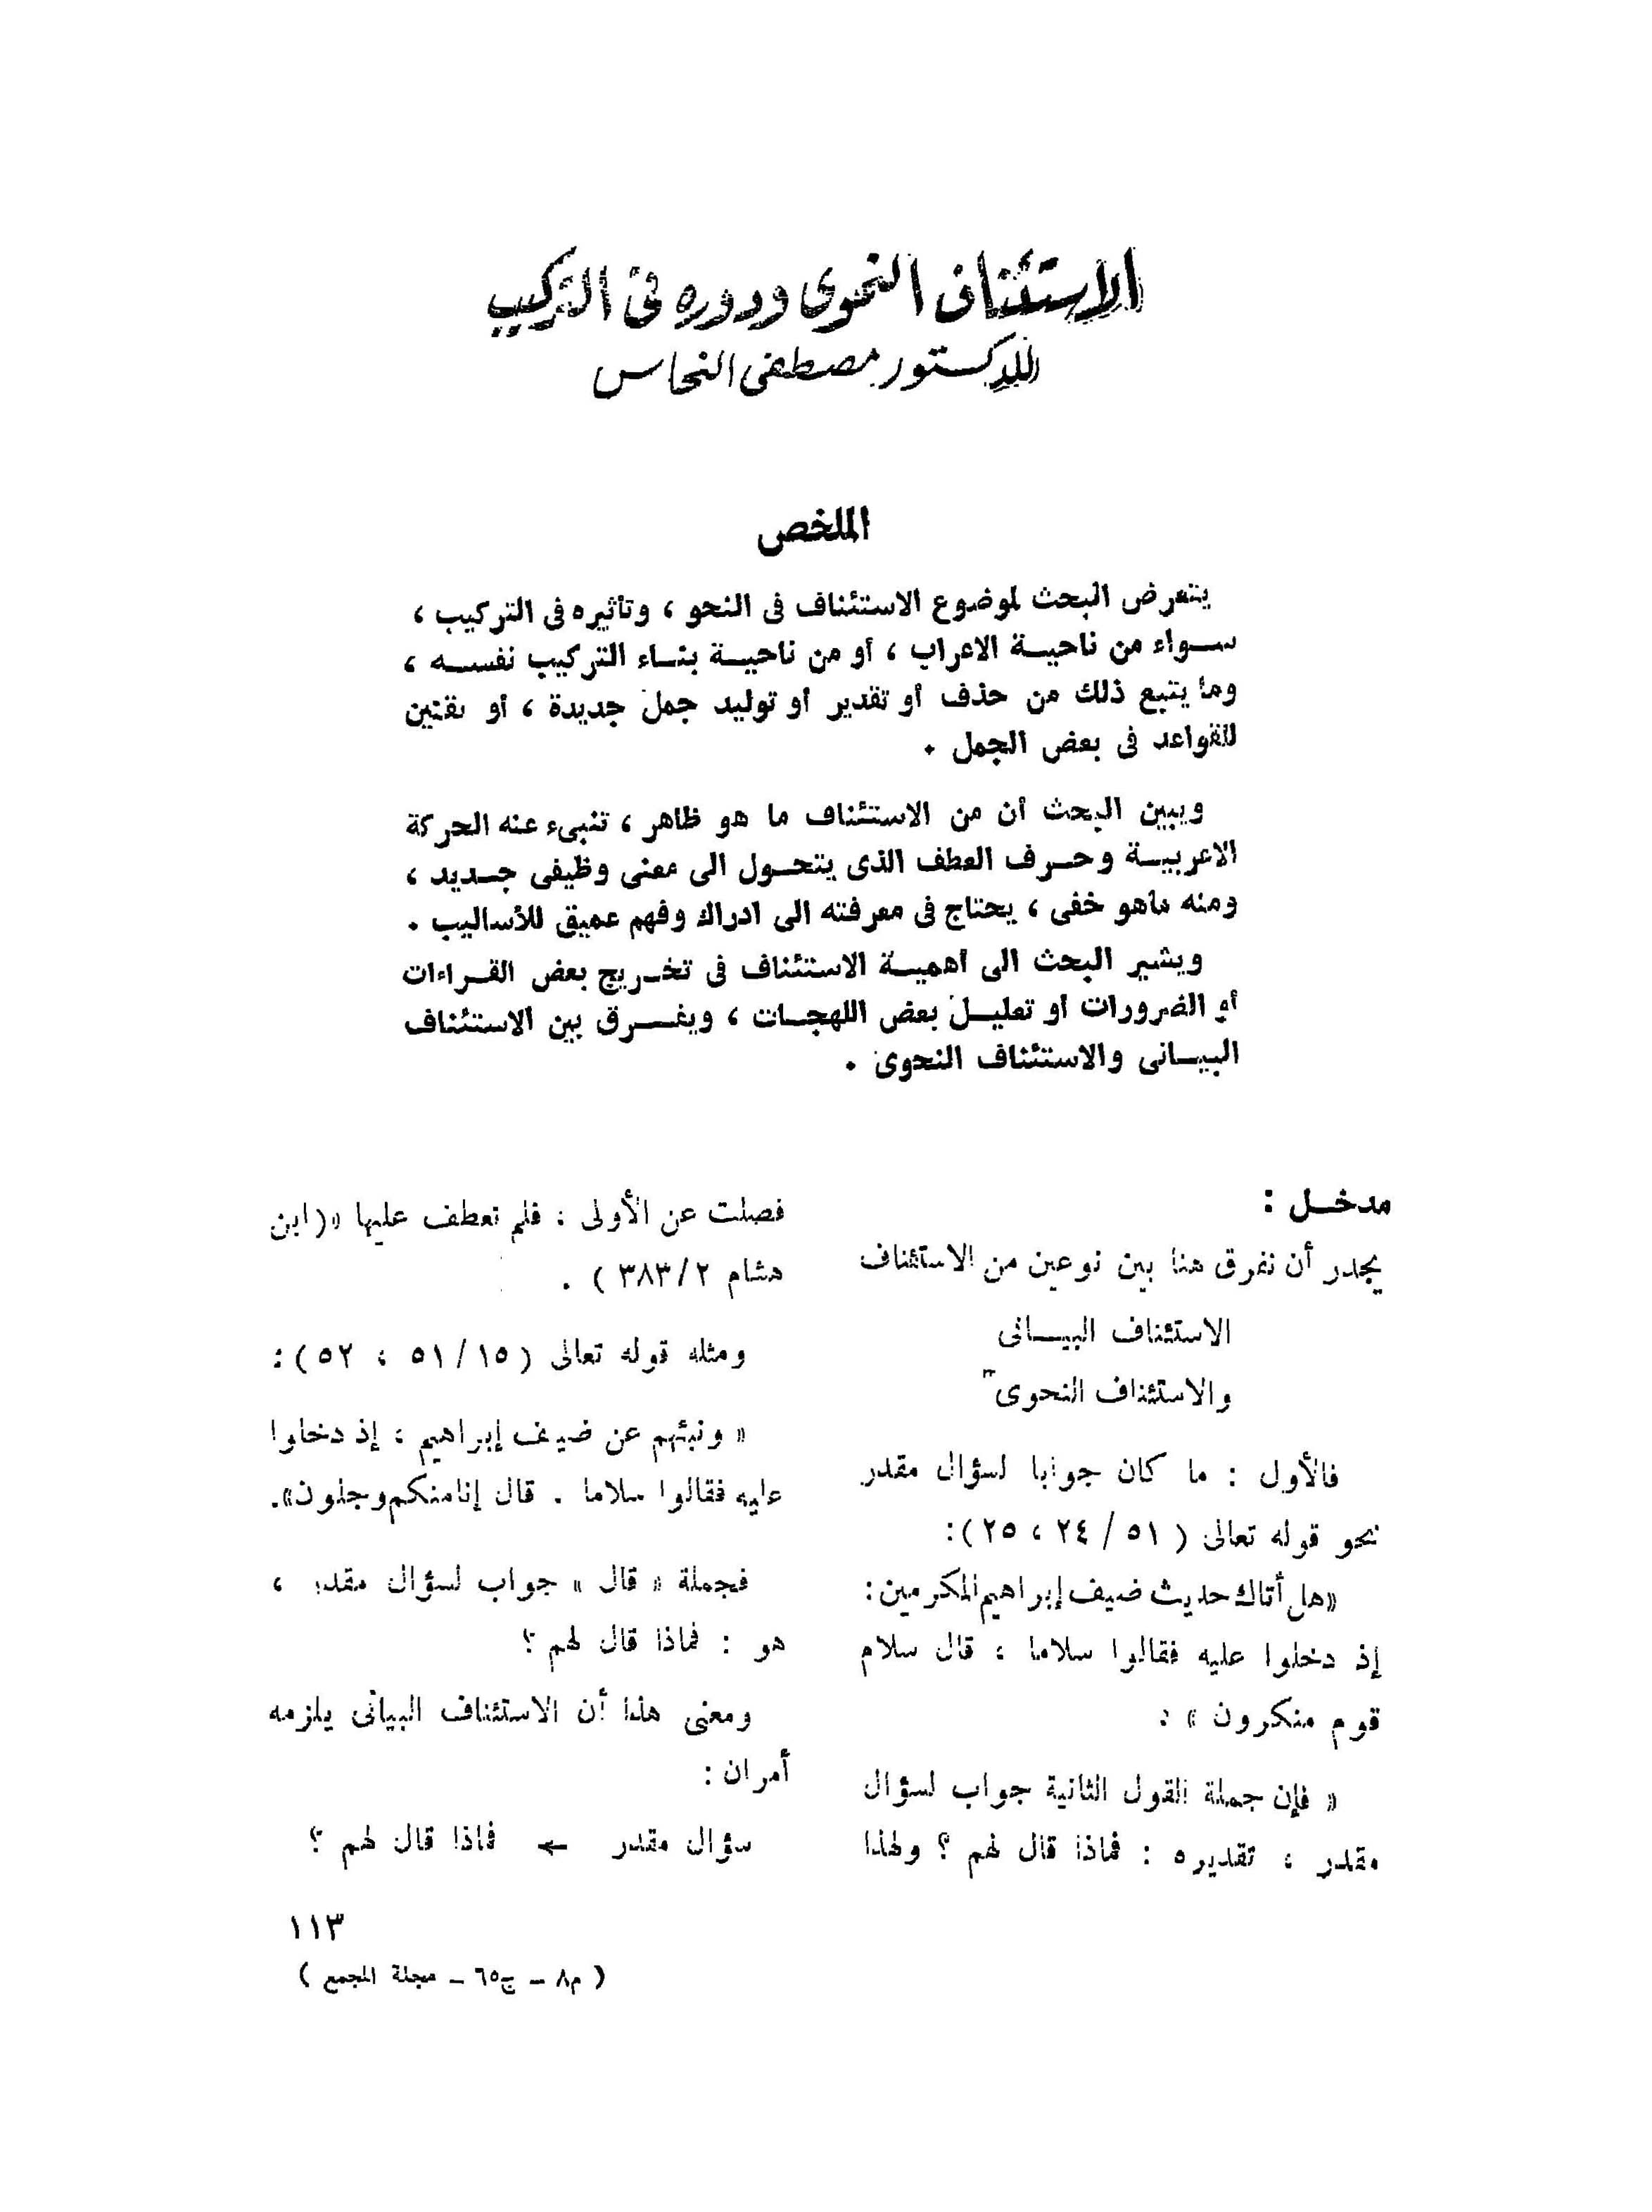 الاستئناف النحوى ودوره فى التركيب
للدكستور مصطفى النحاس
الملخص
يتعرض البحث لموضوع الاستئناف فى النحو ، وتأثيره فى التركيب ،
سواء من ناحية الاعراب ، أو من ناحية بناء التركيب نفسه ،
وما يتبع ذلك من حذف أو تقدير أو توليد جمل جديدة ، أو تقنين
للقواعد فى بعض الجمل .
ويبين البحث أن من الاستئناف ما هو ظاهر ، تنبىء عنه الحركة
الاعربية وحرف العطف الذى يتحول الى معنى وظيفى جديد ،
ومنه ماهو خفى ، يحتاج فى معرفته الى ادراك وفهم عميق للأساليب .
ويشير البحث الى أهمية الاستئناف فى تخريج بعض القراءات
أو الضرورات أو تعليل بعض اللهجات ، ويفرق بين الاستئناف
البيانى والاستئناف النحوى .
مدخل :
يجدر أن نفرق هنا بين نوعين من الاستئناف
الاستئناف البيانى
والاستئناف النحوى
فالأول : ما كان جوابا لسؤال مقدر
نحو قوله تعالى ( ٥١ / ٢٤ ، ٢٥ ) :
«هل أتاك حديث ضيف إبراهيم المكرمين :
إذ دخلوا عليه فقالوا سلاما ، قال سلام
قوم منكرون » :
« فإن جملة القول الثانية جواب لسؤال
مقدر ، تقديره : فماذا قال لهم ؟ ولهذا
فصلت عن الأولى ، فلم تعطف عليها «(ابن
هشام ٣٨٣/٢ ) .
ومثله قوله تعالى ( ٥١/١٥ ، ٥٢ ) :
« ونبئهم عن ضيف إبراهيم ، إذ دخلوا
عليه فقالوا سلاما . قال إنا منكم وجلون».
فجملة « قال » جواب لسؤال مقدر ،
هو : فماذا قال لهم ؟
ومعنى هذا أن الاستئناف البيانى يلزمه
أمران :
سؤال مقدر ← فماذا قال لهم ؟
١١٣
( م٨ – ج٦٥ – مجلة المجمع )